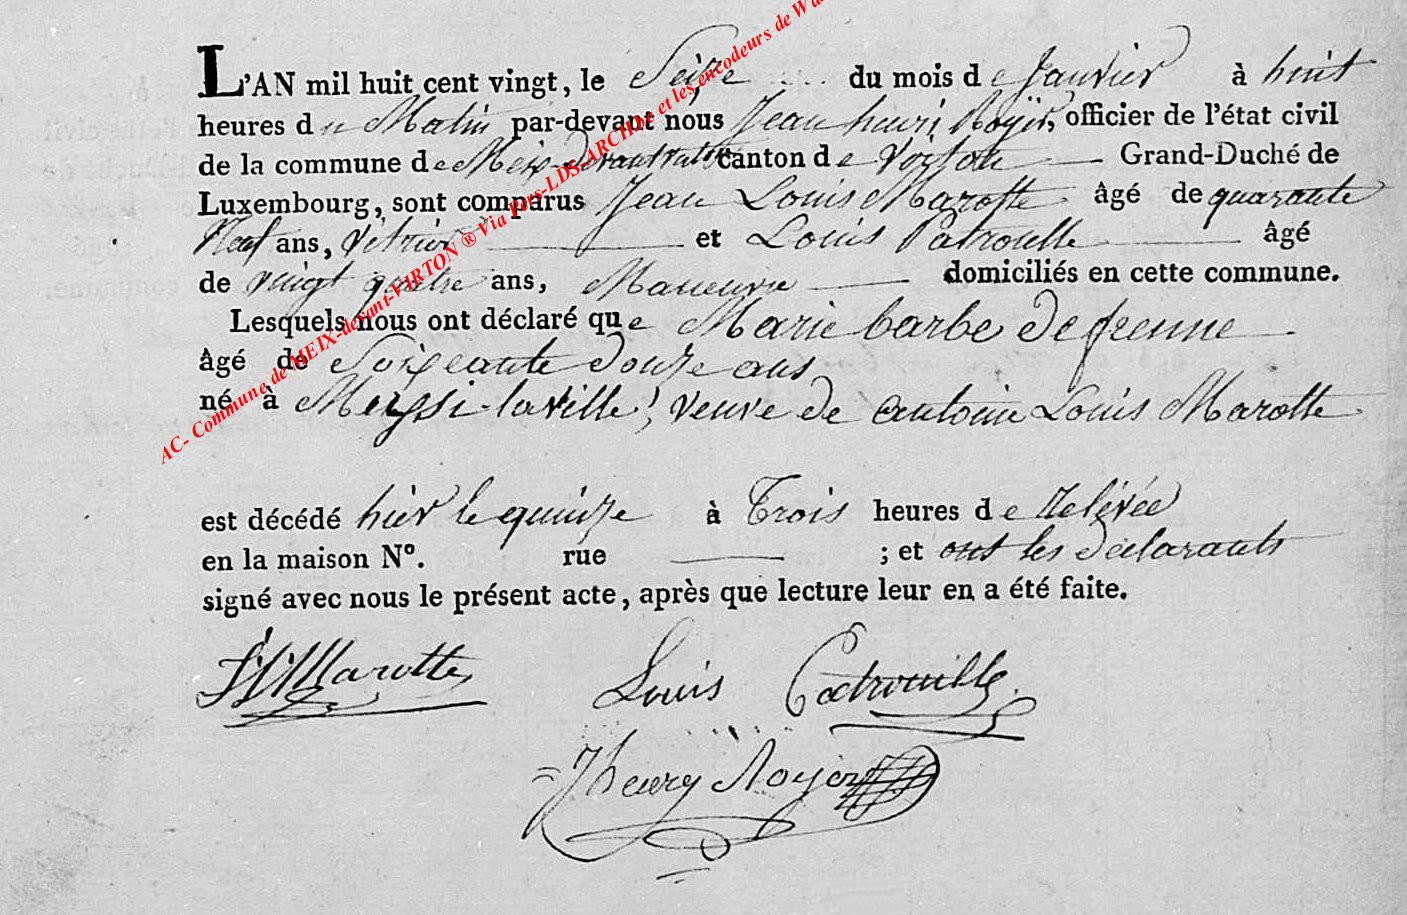 L'AN mil huit cent vingt, le Seize du mois de Janvier à huit
heures du Matin par-devant nous Jean henri Royer, officier de l'état civil
de la commune de Meix devant virton canton de Virton Grand-Duché de
Luxembourg, sont comparus Jean Louis Marotte âgé de quarante
Neuf ans, et Louis Patrouille âgé
de vingt quatre ans, Maneuvre domiciliés en cette commune.
Lesquels nous ont déclaré que Marie barbe defrenne
âgé de Soixante douze ans
né à la ville, veuve de antoine Louis Marotte
est décédé hier le quinze à Trois heures de relévée
en la maison N°. rue ; et ont les déclarants
signé avec nous le présent acte, après que lecture leur en a été faite.
Marotte Louis Patrouille
Jhenry Royer
AC- Commune de MEIX-devant-VIRTON ® Via Pers-LDS-ARCHIve et les encodeurs de